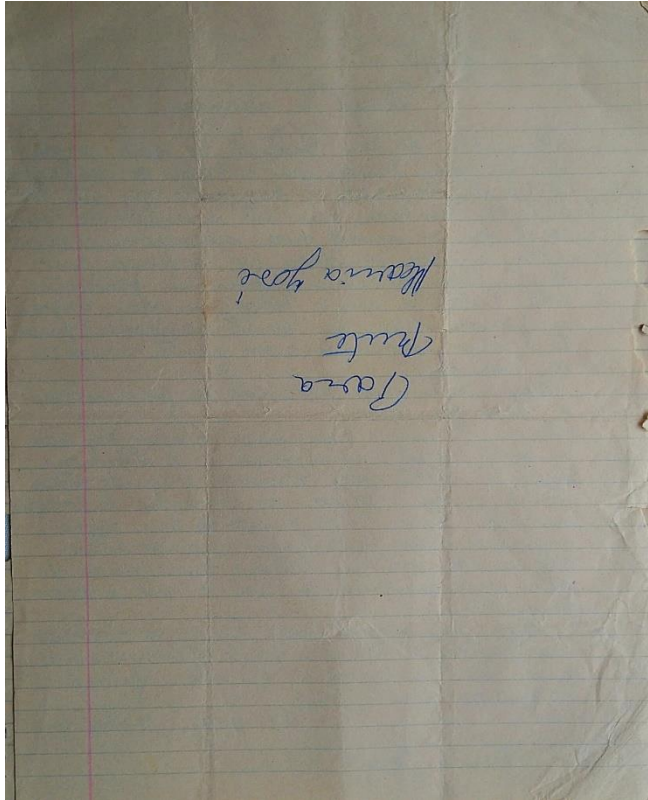 Para
Rute
Maria José